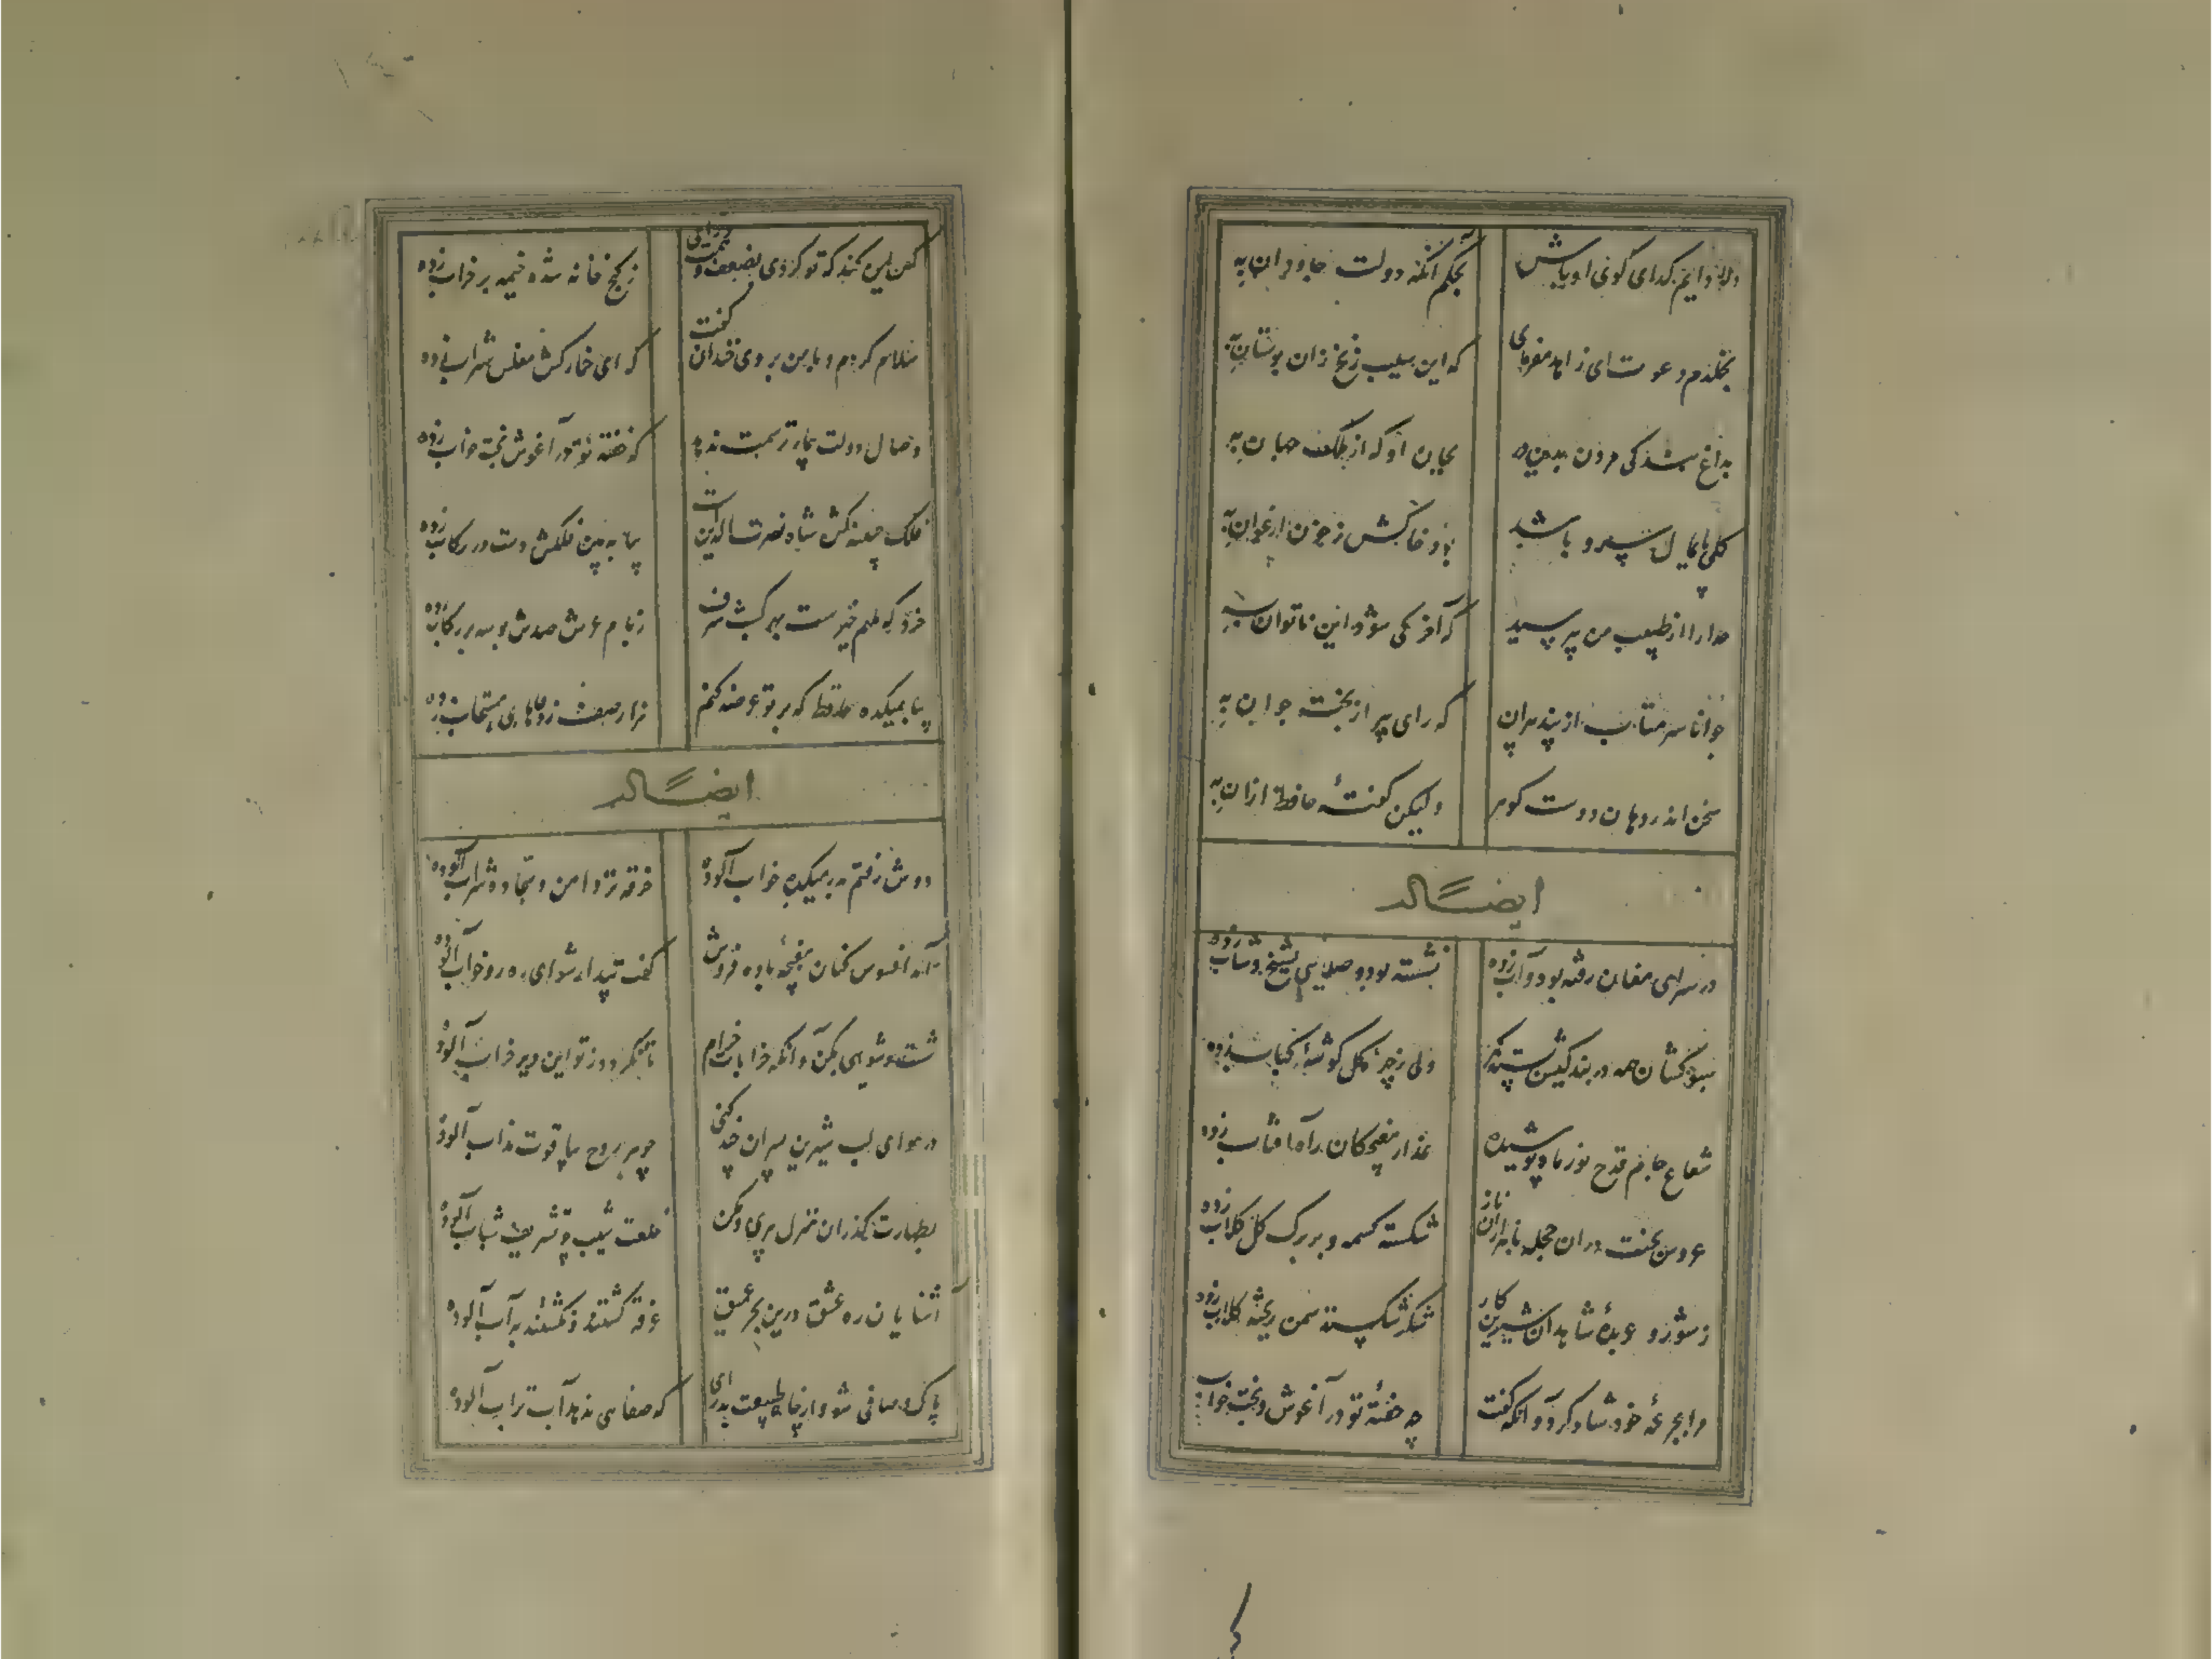 دلا دایم گدای کوی او باش بحکم آنکه دولت جاودان به
بخلدم دعوت ای زاهد مفرمای که این سیب زنخ زان بوستان به
بداغ بندگی مردن بدین در بجان او که از ملک جهان به
گلی کان پایمال سرو ما شد بود خاکش ز خون ارغوان به
خدا را از طبیب من بپرسید که آخر کی شود این ناتوان به
جوانا سر متاب از پند پیران که رای پیر از بخت جوان به
سخن اندر دهان دوست گوهر ولیکن گفتهٔ حافظ ازان به
ایضاً له
در سرای مغان رفته بود و آب زده نشسته پیر و صلایی بشیخ و شاب زده
سبوکشان همه در بندگیش بسته کمر ولی ز چتر کله گوشهٔ سحاب زده
شعاع جام قدح نور ماه پوشیده عذار مغبچگان راه آفتاب زده
عروس بخت دران حجله با هزاران ناز شکسته کسمه و بر برگ گل گلاب زده
ز شور و عربدهٔ شاهدان شیرین کار شکر شکسته سمن ریخته رباب زده
مرا بجرعهٔ خود شاد کرد و آنگه گفت چه خفتهٔ تو در آغوش بخت خواب
که این کند که تو کردی بضعف همت و رای ز گنج خانه شده خیمه بر خراب زده
سلام کردم و با من بروی خندان گفت که ای خمارکش مفلس شراب زده
وصال دولت بیدار ترسمت ندهد که خفتهٔ تو در آغوش بخت خواب زده
فلک جنیبه کش شاه نصرت الدینست بیا ببین ملکش دست در رکاب زده
خرد که ملهم غیبست بهر کسب شرف ز بام عرش صدش بوسه بر رکاب زده
بیا بمیکده حافظ که بر تو عرضه کنم هزار صف ز دعاهای مستجاب زده
ایضاً له
دوش رفتم بدر میکده خواب آلوده خرقه تر دامن و سجاده شراب آلوده
آمد افسوس کنان مغبچهٔ باده فروش گفت بیدار شو ای ره رو خواب آلوده
شست و شویی بکن و آنگه بخرابات خرام تا نگردد ز تو این دیر خراب آلوده
در هوای لب شیرین پسران چند کنی جوهر روح بیاقوت مذاب آلوده
بطهارت گذران منزل پیری و مکن خلعت شیب بتشریف شباب آلوده
آشنایان ره عشق درین بحر عمیق غرقه گشتند و نگشتند به آب آلوده
پاک و صافی شو و از چاه طبیعت بدر آی که صفایی ندهد آب تراب آلوده